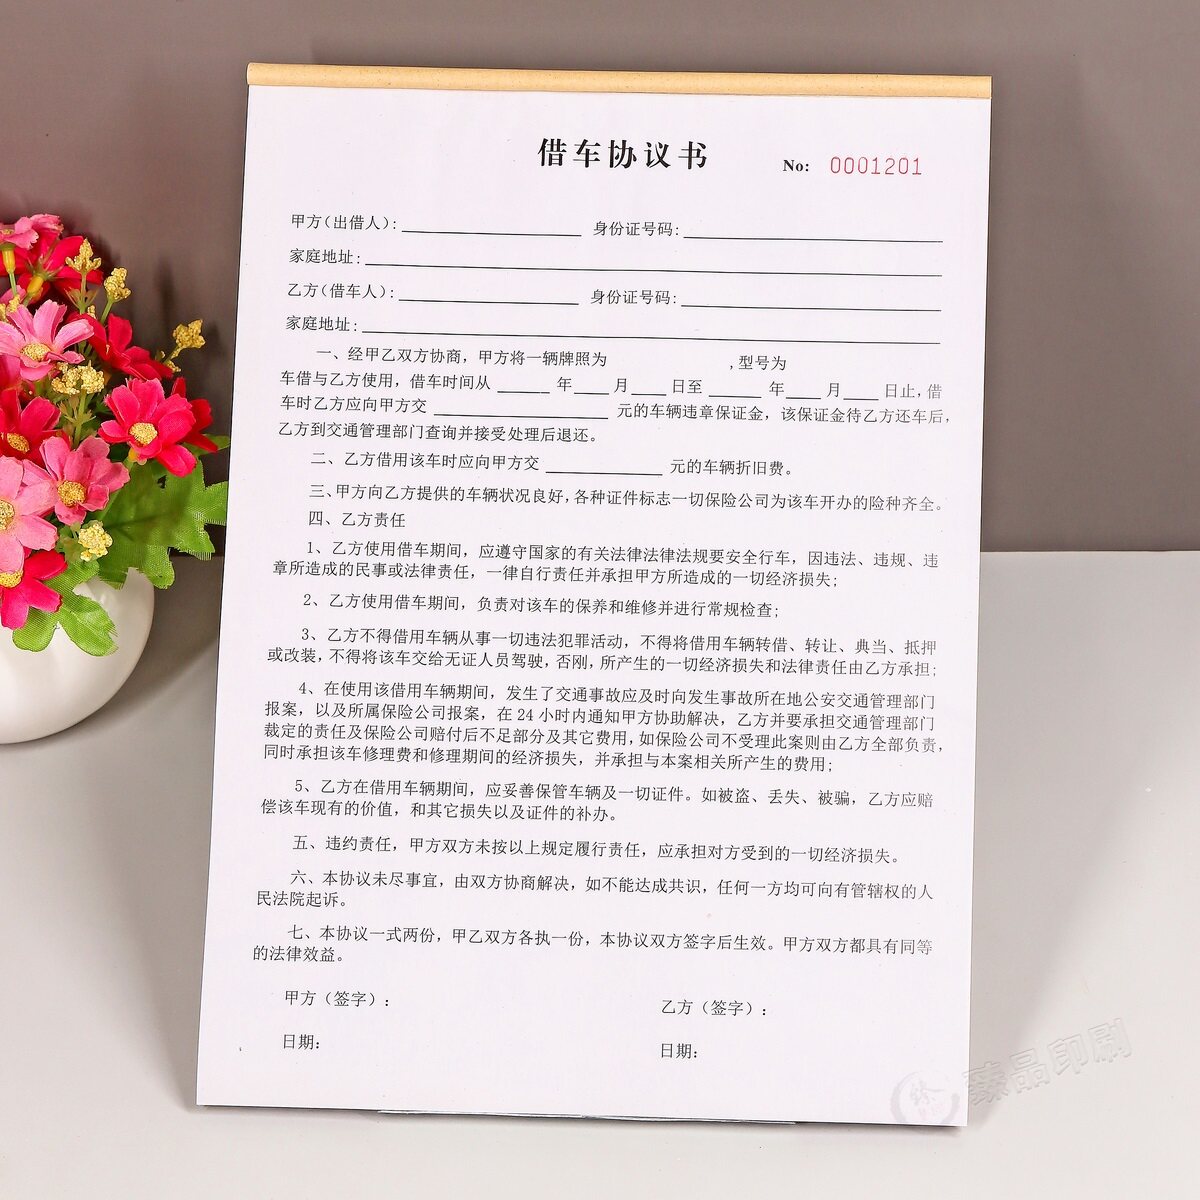 借车协议书
No: 0001201
甲方(出借人): 身份证号码:
家庭地址:
乙方(借车人): 身份证号码:
家庭地址:
一、经甲乙双方协商，甲方将一辆牌照为 ,型号为
车借与乙方使用，借车时间从 年 月 日至 年 月 日止,借
车时乙方应向甲方交 元的车辆违章保证金，该保证金待乙方还车后,
乙方到交通管理部门查询并接受处理后退还。
二、乙方借用该车时应向甲方交 元的车辆折旧费。
三、甲方向乙方提供的车辆状况良好,各种证件标志一切保险公司为该车开办的险种齐全。
四、乙方责任
1、乙方使用借车期间，应遵守国家的有关法律法律法规要安全行车，因违法、违规、违
章所造成的民事或法律责任，一律自行责任并承担甲方所造成的一切经济损失;
2、乙方使用借车期间，负责对该车的保养和维修并进行常规检查;
3、乙方不得借用车辆从事一切违法犯罪活动，不得将借用车辆转借、转让、典当、抵押
或改装,不得将该车交给无证人员驾驶,否刚,所产生的一切经济损失和法律责任由乙方承担;
4、在使用该借用车辆期间，发生了交通事故应及时向发生事故所在地公安交通管理部门
报案，以及所属保险公司报案，在24小时内通知甲方协助解决，乙方并要承担交通管理部门
裁定的责任及保险公司赔付后不足部分及其它费用,如保险公司不受理此案则由乙方全部负责,
同时承担该车修理费和修理期间的经济损失，并承担与本案相关所产生的费用;
5、乙方在借用车辆期间，应妥善保管车辆及一切证件。如被盗、丢失、被骗，乙方应赔
偿该车现有的价值，和其它损失以及证件的补办。
五、违约责任，甲方双方未按以上规定履行责任，应承担对方受到的一切经济损失。
六、本协议未尽事宜，由双方协商解决，如不能达成共识，任何一方均可向有管辖权的人
民法院起诉。
七、本协议一式两份，甲乙双方各执一份，本协议双方签字后生效。甲方双方都具有同等
的法律效益。
甲方（签字）: 乙方（签字）:
日期: 日期:
臻品印刷